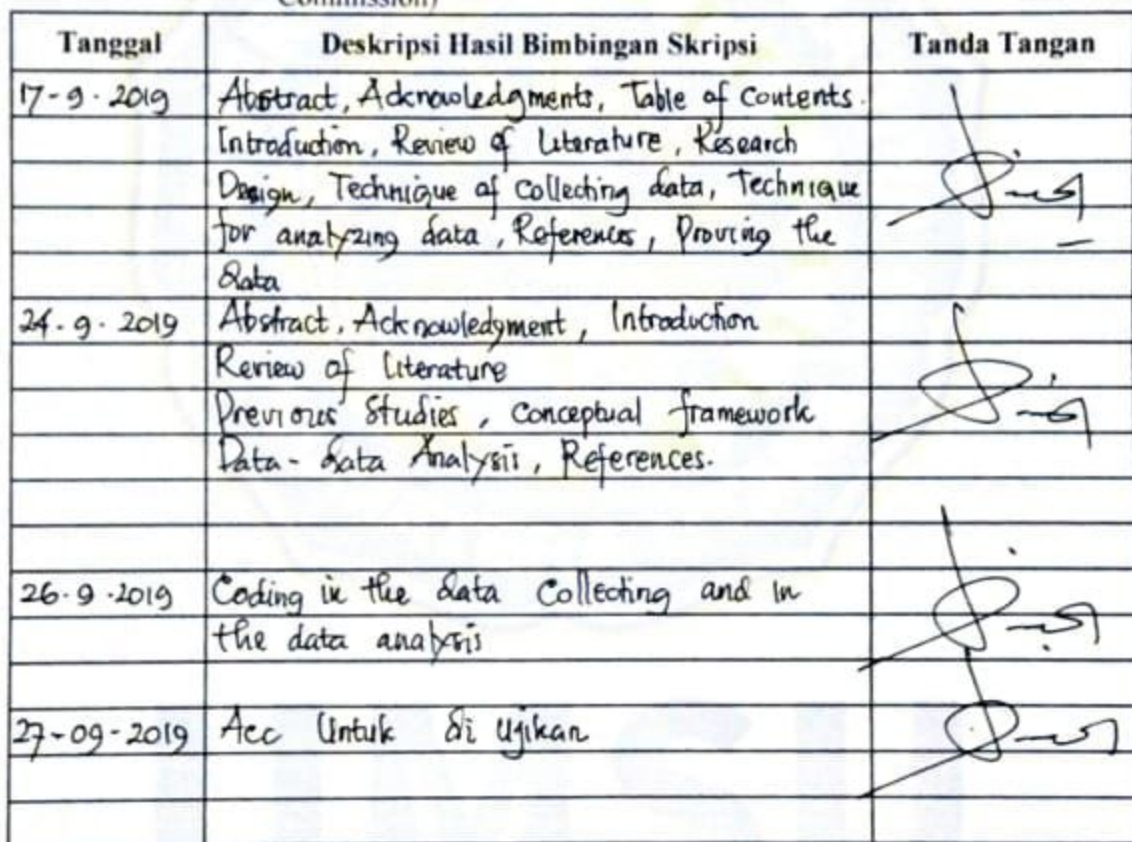 Commission)
Tanggal Deskripsi Hasil Bimbingan Skripsi Tanda Tangan
17-9-2019 Abstract, Acknowledgments, Table of Contents.
Introduction, Review of Literature, Research
Design, Technique of collecting data, Technique
for analyzing data, References, Proving the
data
24-9-2019 Abstract, Acknowledgment, Introduction
Review of Literature
Previous Studies, Conceptual framework
Data-data Analysis, References.
26-9-2019 Coding in the data Collecting and in
the data analysis
27-09-2019 Acc Untuk di Ujikan